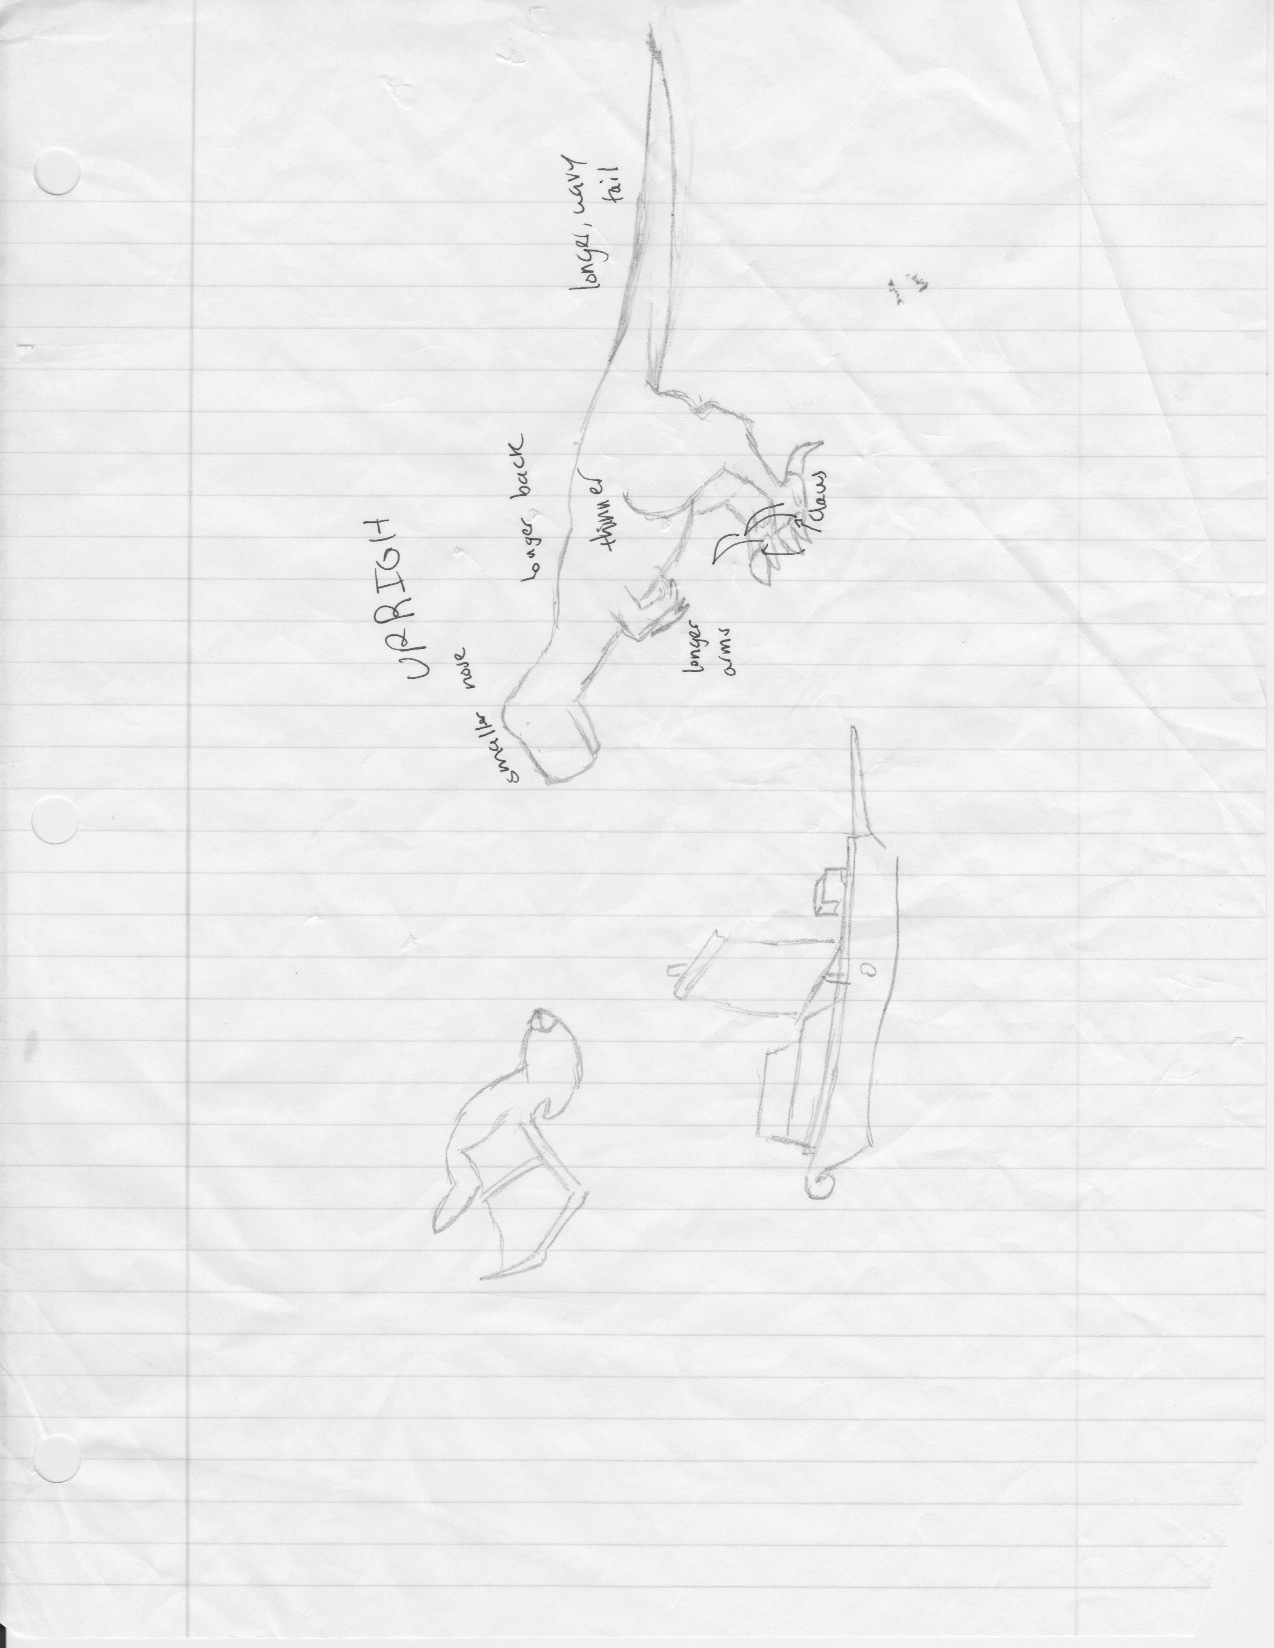 UPRIGH
smaller nose
longer back
thinner
longer, wavy
tail
longer
arms
claws